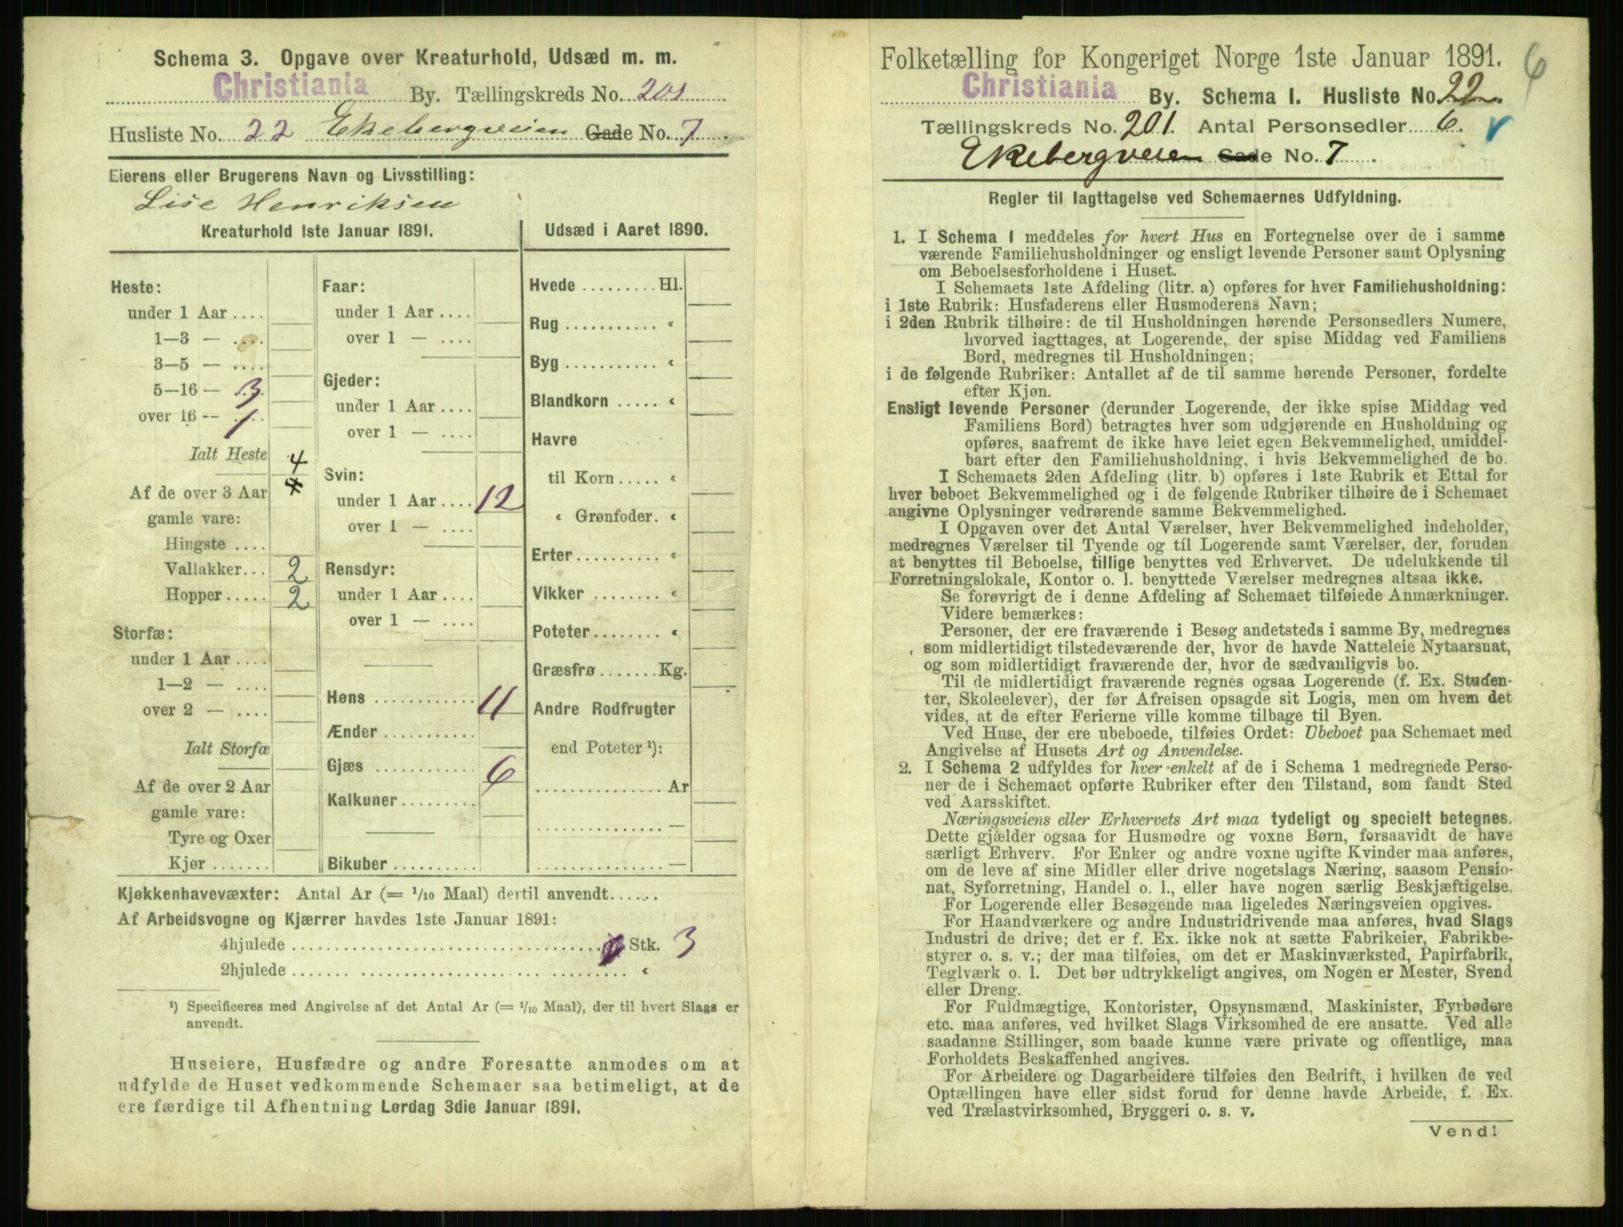 Schema 3. Opgave over Kreaturhold, Udsæd m. m.
Christiania By. Tællingskreds No. 201
Husliste No. 22 Ekebergveien Gade No. 7.
Eierens eller Brugerens Navn og Livsstilling:
Lise Henriksen
Kreaturhold 1ste Januar 1891.
Heste:
under 1 Aar ....
1—3 — ....
3—5 — ....
5—16 — 3
over 16 — 1
Ialt Heste 4
Af de over 3 Aar 4
gamle vare:
Hingste ....
Vallakker... 2
Hopper..... 2
Storfæ:
under 1 Aar ....
1—2 — ....
over 2 — ....
Ialt Storfæ
Af de over 2 Aar
gamle vare:
Tyre og Oxer
Kjør .......
Faar:
under 1 Aar ....
over 1 — ....
Gjeder:
under 1 Aar ....
over 1 — ....
Svin:
under 1 Aar .... 12
over 1 — ....
Rensdyr:
under 1 Aar ....
over 1 — ....
Høns ............ 11
Ænder ............
Gjæs ............ 6
Kalkuner.........
Bikuber ..........
Udsæd i Aaret 1890.
Hvede ......... Hl.
Rug ........... «
Byg ........... «
Blandkorn ..... «
Havre
til Korn..... «
« Grønfoder. «
Erter.......... «
Vikker ........ «
Poteter........ «
Græsfrø....... Kg.
Andre Rodfrugter
end Poteter ¹):
............... Ar
............... —
............... —
Kjøkkenhavevæxter: Antal Ar (= 1/10 Maal) dertil anvendt......
Af Arbeidsvogne og Kjærrer havdes 1ste Januar 1891:
4hjulede ........................................ Stk. 3
2hjulede ........................................ «
¹) Specificeres med Angivelse af det Antal Ar (= 1/10 Maal), der til hvert Slags er
anvendt.
Huseiere, Husfædre og andre Foresatte anmodes om at
udfylde de Huset vedkommende Schemaer saa betimeligt, at de
ere færdige til Afhentning Lørdag 3die Januar 1891.
Folketælling for Kongeriget Norge 1ste Januar 1891.
6
Christiania By. Schema I. Husliste No. 22.
Tællingskreds No. 201. Antal Personsedler 6.
Ekebergveien Gade No. 7.
Regler til Iagttagelse ved Schemaernes Udfyldning.
1. I Schema 1 meddeles for hvert Hus en Fortegnelse over de i samme
værende Familiehusholdninger og ensligt levende Personer samt Oplysning
om Beboelsesforholdene i Huset.
I Schemaets 1ste Afdeling (litr. a) opføres for hver Familiehusholdning:
i 1ste Rubrik: Husfaderens eller Husmoderens Navn;
i 2den Rubrik tilhøire: de til Husholdningen hørende Personsedlers Numere,
hvorved iagttages, at Logerende, der spise Middag ved Familiens
Bord, medregnes til Husholdningen;
i de følgende Rubriker: Antallet af de til samme hørende Personer, fordelte
efter Kjøn.
Ensligt levende Personer (derunder Logerende, der ikke spise Middag ved
Familiens Bord) betragtes hver som udgjørende en Husholdning og
opføres, saafremt de ikke have leiet egen Bekvemmelighed, umiddel-
bart efter den Familiehusholdning, i hvis Bekvemmelighed de bo.
I Schemaets 2den Afdeling (litr. b) opføres i 1ste Rubrik et Ettal for
hver beboet Bekvemmelighed og i de følgende Rubriker tilhøire de i Schemaet
angivne Oplysninger vedrørende samme Bekvemmelighed.
I Opgaven over det Antal Værelser, hver Bekvemmelighed indeholder,
medregnes Værelser til Tyende og til Logerende samt Værelser, der, foruden
at benyttes til Beboelse, tillige benyttes ved Erhvervet. De udelukkende til
Forretningslokale, Kontor o. l. benyttede Værelser medregnes altsaa ikke.
Se forøvrigt de i denne Afdeling af Schemaet tilføiede Anmærkninger.
Videre bemærkes:
Personer, der ere fraværende i Besøg andetsteds i samme By, medregnes
som midlertidigt tilstedeværende der, hvor de havde Natteleie Nytaarsnat,
og som midlertidigt fraværende der, hvor de sædvanligvis bo.
Til de midlertidigt fraværende regnes ogsaa Logerende (f. Ex. Studen-
ter, Skoleelever), der før Afreisen opsagde sit Logis, men om hvem det
vides, at de efter Ferierne ville komme tilbage til Byen.
Ved Huse, der ere ubeboede, tilføies Ordet: Ubeboet paa Schemaet med
Angivelse af Husets Art og Anvendelse.
2. I Schema 2 udfyldes for hver enkelt af de i Schema 1 medregnede Perso-
ner de i Schemaet opførte Rubriker efter den Tilstand, som fandt Sted
ved Aarsskiftet.
Næringsveiens eller Erhvervets Art maa tydeligt og specielt betegnes.
Dette gjælder ogsaa for Husmødre og voxne Børn, forsaavidt de have
særligt Erhverv. For Enker og andre voxne ugifte Kvinder maa anføres,
om de leve af sine Midler eller drive nogetslags Næring, saasom Pensio-
nat, Syforretning, Handel o. l., eller have nogen særlig Beskjæftigelse.
For Logerende eller Besøgende maa ligeledes Næringsveien opgives.
For Haandværkere og andre Industridrivende maa anføres, hvad Slags
Industri de drive; det er f. Ex. ikke nok at sætte Fabrikeier, Fabrikbe-
styrer o. s. v.; der maa tilføies, om det er Maskinværksted, Papirfabrik,
Teglværk o. l. Det bør udtrykkeligt angives, om Nogen er Mester, Svend
eller Dreng.
For Fuldmægtige, Kontorister, Opsynsmænd, Maskinister, Fyrbødere
etc. maa anføres, ved hvilket Slags Virksomhed de ere ansatte. Ved alle
saadanne Stillinger, som baade kunne være private og offentlige, maa
Forholdets Beskaffenhed angives.
For Arbeidere og Dagarbeidere tilføies den Bedrift, i hvilken de ved
Optællingen have eller sidst forud for denne havde Arbeide, f. Ex.
ved Trælastvirksomhed, Bryggeri o. s. v.
Vend!